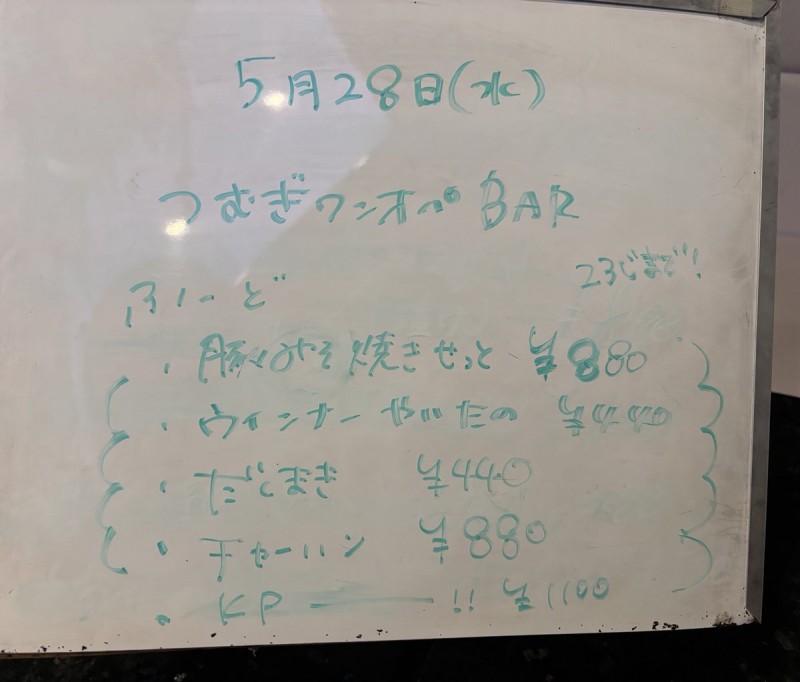 5月28日(水)
つむぎワンオペBAR
23じまで!
ふーど
・豚みそ焼きせっと ¥880
・ウィンナーやいたの ¥440
・だしまき ¥440
・チャーハン ¥880
・KP ー !! ¥1100